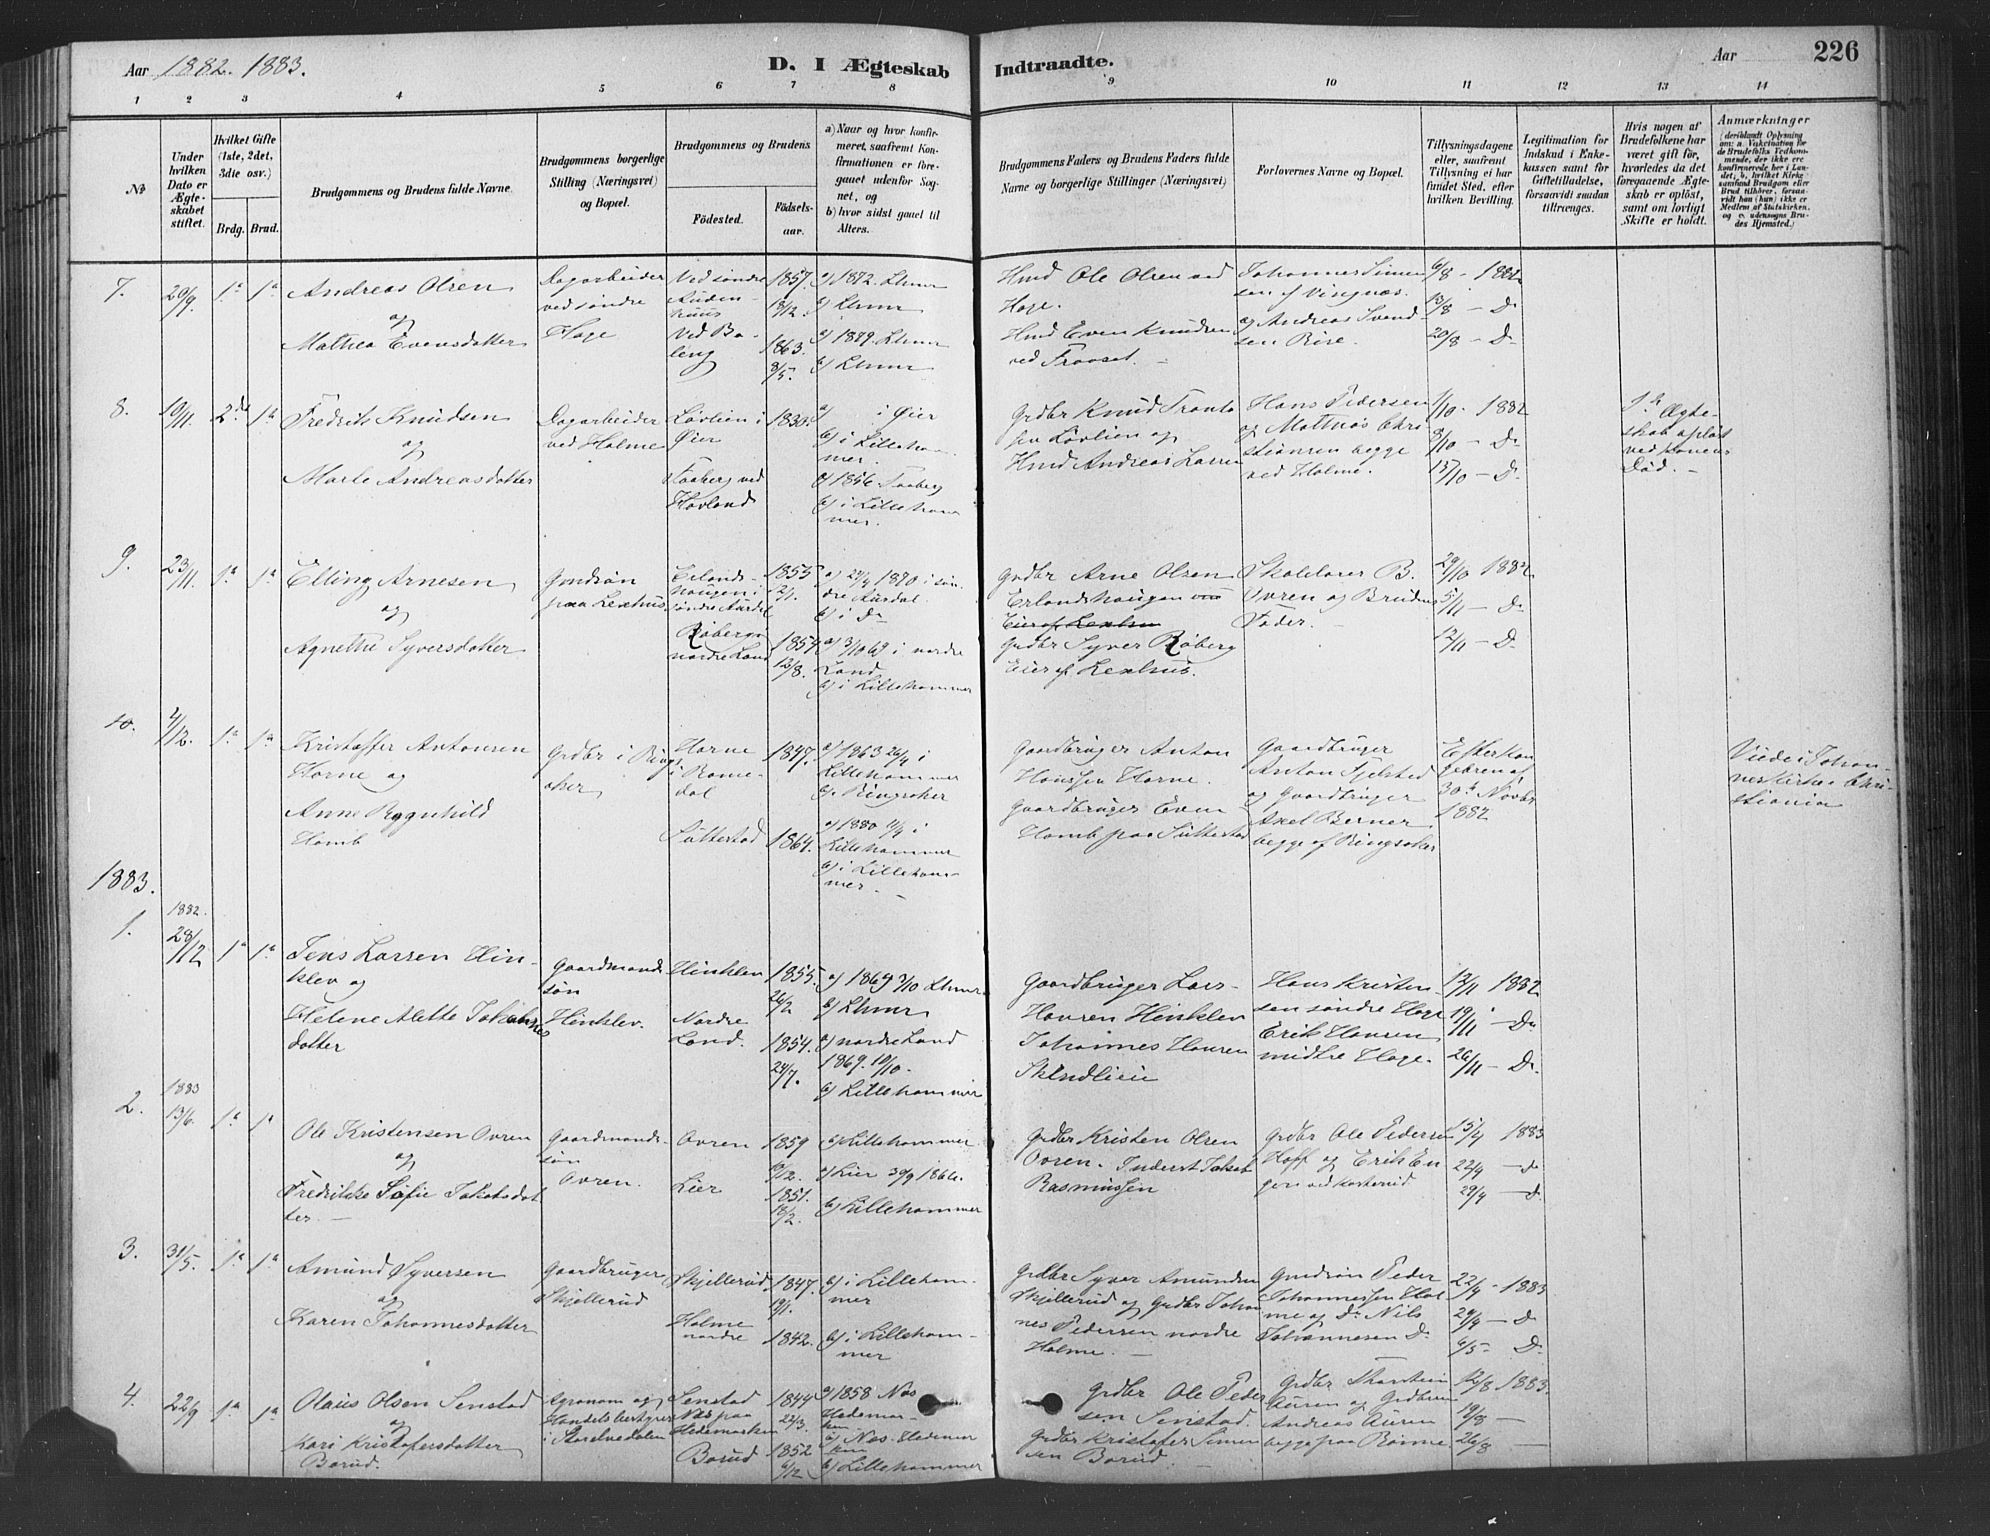 Aar 1882. 1883.
D. I Ægteskab Indtraadte.
Aar
226
1 2 3 4 5 6 7 8 9 10 11 12 13 14
No
Under hvilken Dato er Ægteskabet stiftet.
Hvilket Gifte (1ste, 2det, 3die osv.)
Brdg. Brud.
Brudgommens og Brudens fulde Navne.
Brudgommens borgerlige Stilling (Næringsvei) og Bopæl.
Brudgommens og Brudens
Fødested.
Fødselsaar.
a) Naar og hvor konfirmeret, saafremt Konfirmationen er foregaaet udenfor Sognet, og
b) hvor sidst gaaet til Alters.
Brudgommens Faders og Brudens Faders fulde Navne og borgerlige Stillinger (Næringsvei)
Forlovernes Navne og Bopæl.
Tillysningsdagene eller, saafremt Tillysning ei har fundet Sted, efter hvilken Bevilling.
Legitimation for Indskud i Enkekassen samt for Giftetilladelse, forsaavidt saadan tiltrænges.
Hvis nogen af Brudefolkene har været gift før, hvorledes da det foregaaende Ægteskab er opløst, samt om lovligt Skifte er holdt.
Anmærkninger
7. 20/9 1ª 1ª
Andreas Olsen
og
Mathea Evensdatter
Dagarbeider
ved søndre
Hage
Ved søndre
Ved Ba-
leng
1857.
8/12.
1863.
8/5.
a) 1872. Lhmr
b) Lhmr
a) 1879. Lhmr
b) Lhmr
Hmd Ole Olsen ved
Hage.
Hmd Even Knudsen
ved
Johannes Simen
sen af Vingnæs.
og Andreas Svend
sen Rise.
6/8 - 1882
13/8 - Do
20/8 - Do
8. 10/11 2de 1ª
Fredrik Knudsen
og
Marte Andreasdatter
Dagarbeider
ved Holme
Løvlien i
Øier
Faaberg ved
Hovland
1830.
a) i Øier
b) i Lilleham
mer.
a) 1856 Faaberg
b) i Lilleham
mer.
Grdbr Knud
Løvlien og
Hmd Andreas Larsen
Hans Pedersen
og Mathias Chri
stiansen begge
ved Holme.
1/10 - 1882
8/10 - Do
15/10 - Do
1ste Ægte-
skab opløst
ved Konens
Død. -
9. 23/11 1ª 1ª
Elling Arnesen
og
Agnethe Syversdatter
Grdsøn
paa Lexhus
Erlands-
haugen i
søndre Aurdal
Røberg
nordre Land
1855
2/1.
1857
12/8.
i søn
dre Aurdal.
b) i Do
a) 3/10 69 i nordre
Land
b) i Lillehammer
Grdbr Arne Olsen
Erlandshaugen
Eier af Lexhus
Grdbr Syver Røberg
Eier af Lexhus.
Skolelærer B.
Ovren og Brudens
Fader. -
29/10 1882
5/11 - Do
12/11 - Do
10. 4/12. 1ª 1ª
Kristoffer Antonsen
Horne og
Anne Ragnhild
Homb
Grdbr i Rings
aker
Horne
i Rome-
dal
Suttestad
1847.
1864.
a) 1863 26/4 i
Lillehammer
b. Ringsaker
a) 1880 4/4 i
Lillehammer
b) i Lilleham-
mer. -
Gaardbruger Anton
Hanssen Horne.
Gaardbruger Even
Homb paa Suttestad
Gaardbruger
Anton Fjelstad
og Gaardbruger
Axel Berner
begge af Ringsaker
Efter Kon
gebrev af
30te Novbr
1882
Viede i Johan-
neskirken Chri-
stiania
1883.
1. 1882. 28/12 1ª 1ª
Jens Larsen Hin-
klev og
Helene Alette Johannes
datter
Gaardmands
søn
Hinklev.
Hinklev
Nordre
Land.
1855.
26/2
1854.
24/7.
a) 1869 3/10 Lhmr
b) Lhmr
a) nordre Land
1869. 10/10.
b) Lillehammer
Gaardbruger Lars
Hansen Hinklev
Johannes Hansen
Skindlien
Hans Kristen
sen søndre Hage
Erik Hansen
midtre Hage.
12/11 1882
19/11 - Do
26/11 - Do
2. 1883 13/6 1ª 1ª
Ole Kristensen Ovren
og
Fredrikke Sofie Jakobsdat
ter. -
Gaardmands-
søn
Ovren.
Ovren
Lier
1859
1851.
18/2.
b) Lillehammer
a) Lier 30/9 1866.
b) Lillehammer
Grdbr Kristen Olsen
Ovren. Inderst Jakob
Rasmussen
Grdbr Ole Pedersen
Hoff og Erik En
gen ved
15/4 1883
22/4 - Do
29/4 - Do
3. 31/5. 1ª 1ª
Amund Syversen
og
Karen Johannesdatter
Gaardbruger
Skjellerud
Skjellerud
Holme
nordre
1847.
19/1.
1842.
b) i Lilleham-
mer
b) i Lilleham-
mer
Grdbr Syver Amundsen
Skjellerud og Grdbr Johan
nes Pedersen nordre
Holme. -
Grdsøn Peder
Johannessen Hol
me og Do Nils
Johannesen Do
22/4 - 1883
29/4 - Do
6/5 - Do
4. 22/9 1ª 1ª
Olaus Olsen Senstad
og
Kari Kristofersdatter
Borud.
Agronom og
Handelsbestyrer
i Storelvedalen
Senstad
Næs paa
Hedemarken
Borud
1844
22/3.
1852
6/12
a) 1858 Næs
Hedemar-
ken
b) Næs Hedemar
ken
b) Lillehammer
Grdbr Ole Peder
sen Senstad.
Grdbr Kristofer Simen
sen Borud.
Grdbr Thorstein
Auren og Grdbr
Andreas Auren
begge paa
12/8 1883.
19/8 -
26/8 -